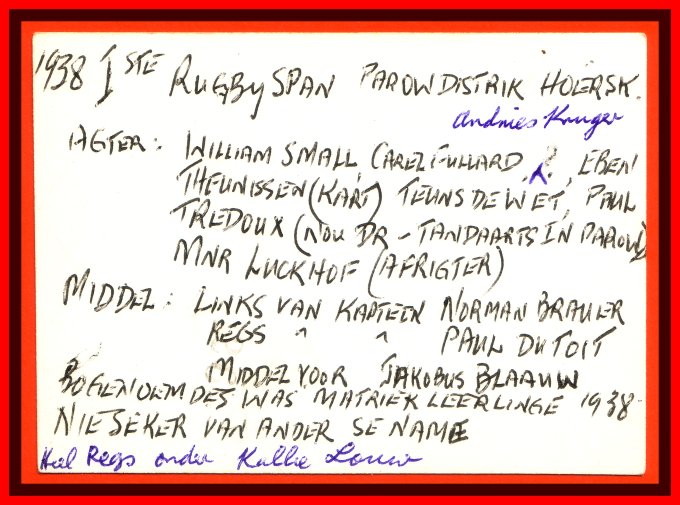 1938 1STE RUGBYSPAN PAROW DISTRIK HOËRSK.
Andries Kruger
AGTER: WILLIAM SMALL, CAREL FULLARD, ?, EBEN
THEUNISSEN (KART) TEUNS DE WET, PAUL
TREDOUX (NOU DR - TANDAARTS IN PAROW)
MNR LUCKHOF (AFRIGTER)
MIDDEL: LINKS VAN KAPTEIN NORMAN BRAUER
REGS " " PAUL DU TOIT
MIDDEL VOOR JAKOBUS BLAAUW
BOGENOEMDES WAS MATRIEK LEERLINGE 1938
NIE SEKER VAN ANDER SE NAME
Heel Regs onder Kallie Louw